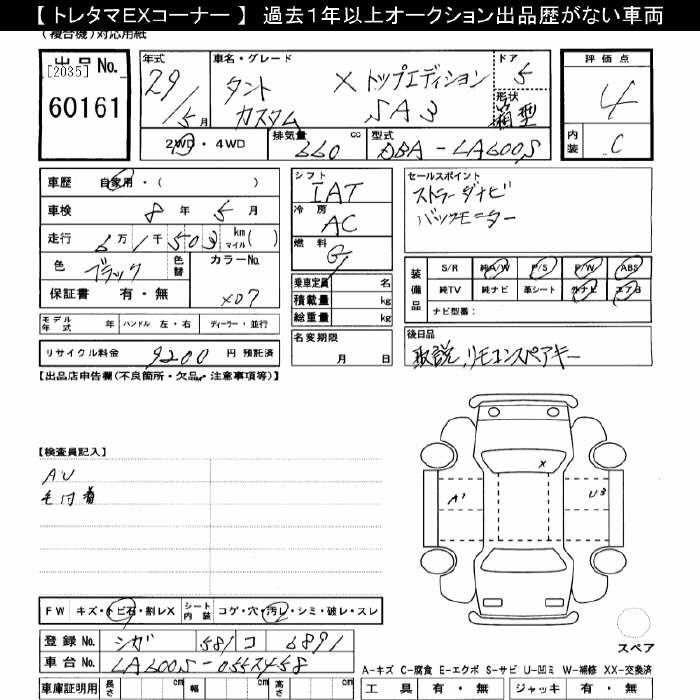 【 トレタマEXコーナー 】 過去1年以上オークション出品歴がない車両
(複合機)対応用紙
出品No.
[2035]
60161
年式
29/5月
車名・グレード
タント X トップエディション
カスタム SA3
ドア
5
形状
箱型
評価点
4
内装
C
2WD・4WD
排気量 660 cc
型式 DBA-LA600S
車歴 自家用・( )
車検 8年5月
走行 6万1千503 km マイル( )
色 ブラック 色替
カラーNo. X07
保証書 有・無
シフト
IAT
冷房
AC
燃料
G
乗車定員 名
積載量 kg
総重量 kg
セールスポイント
ストラーダナビ
バックモニター
装備品
S/R 純A/W P/S P/W ABS
純TV 純ナビ 革シート 外ナビ エアB
ナビ型番:
モデル年式 年 ハンドル 左・右 ディーラー・並行
リサイクル料金 9200 円 預託済
名変期限
月 日
後日品
取説,リモコンスペアキー
【出品店申告欄(不良箇所・欠品・注意事項等)】
【検査員記入】
AU
毛付着
X
A1
U3
FW キズ・トビ石・割レX
シート内装 コゲ・穴・汚レ・シミ・破レ・スレ
登録No. シガ 581 コ 6891
車台No. LA600S-0557458
車庫証明用 長さ cm 幅 cm 高さ cm
スペア
A-キズ C-腐食 E-エクボ S-サビ U-凹ミ W-補修 XX-交換済
工具 有・無 ジャッキ 有・無